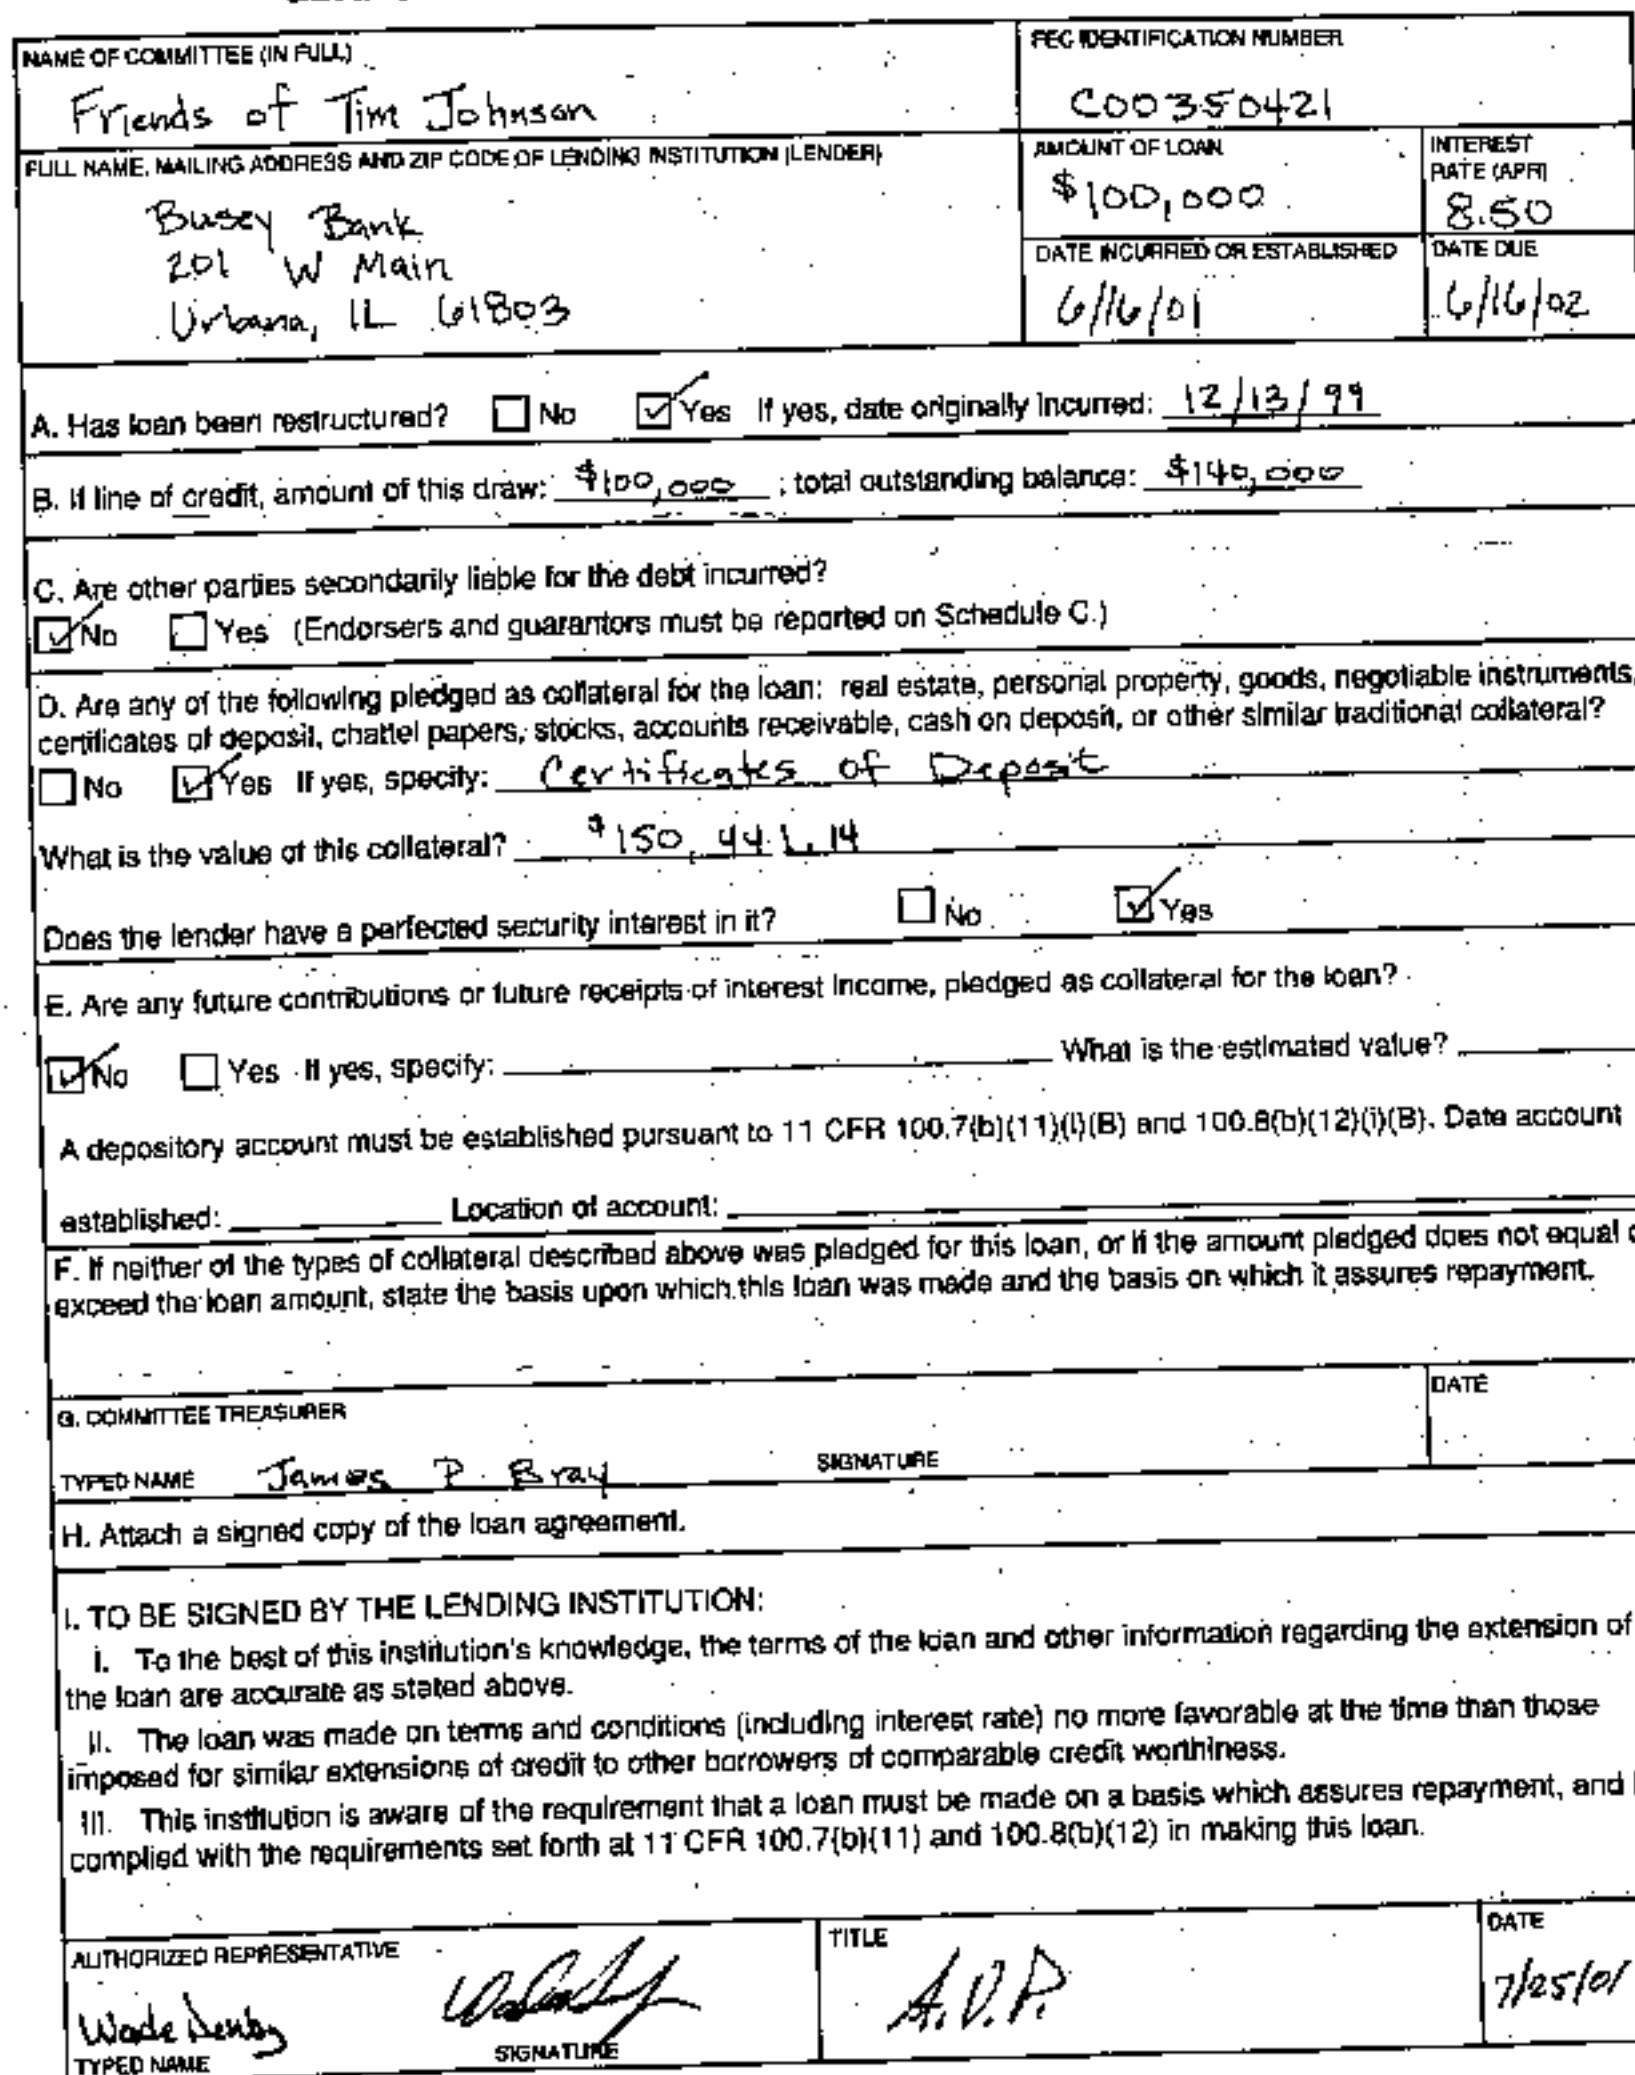 NAME OF COMMITTEE (IN FULL)
Friends of Tim Johnson
FEC IDENTIFICATION NUMBER
C00350421
FULL NAME, MAILING ADDRESS AND ZIP CODE OF LENDING INSTITUTION (LENDER)
Busey Bank
201 W Main
Urbana, IL 61803
AMOUNT OF LOAN
$100,000
INTEREST
RATE (APR)
8.50
DATE INCURRED OR ESTABLISHED
6/16/01
DATE DUE
6/16/02
A. Has loan been restructured? No Yes If yes, date originally incurred: 12/13/99
B. If line of credit, amount of this draw: $100,000 ; total outstanding balance: $140,000
C. Are other parties secondarily liable for the debt incurred?
No Yes (Endorsers and guarantors must be reported on Schedule C.)
D. Are any of the following pledged as collateral for the loan: real estate, personal property, goods, negotiable instruments,
certificates of deposit, chattel papers, stocks, accounts receivable, cash on deposit, or other similar traditional collateral?
No Yes If yes, specify: Certificates of Deposit
What is the value of this collateral? $150,441.14
Does the lender have a perfected security interest in it? No Yes
E. Are any future contributions or future receipts of interest income, pledged as collateral for the loan?
No Yes If yes, specify: What is the estimated value?
A depository account must be established pursuant to 11 CFR 100.7(b)(11)(i)(B) and 100.8(b)(12)(i)(B). Date account
established: Location of account:
F. If neither of the types of collateral described above was pledged for this loan, or if the amount pledged does not equal
exceed the loan amount, state the basis upon which this loan was made and the basis on which it assures repayment.
G. COMMITTEE TREASURER
DATE
TYPED NAME James P. Bray SIGNATURE
H. Attach a signed copy of the loan agreement.
I. TO BE SIGNED BY THE LENDING INSTITUTION:
I. To the best of this institution's knowledge, the terms of the loan and other information regarding the extension of
the loan are accurate as stated above.
II. The loan was made on terms and conditions (including interest rate) no more favorable at the time than those
imposed for similar extensions of credit to other borrowers of comparable credit worthiness.
III. This institution is aware of the requirement that a loan must be made on a basis which assures repayment, and
complied with the requirements set forth at 11 CFR 100.7(b)(11) and 100.8(b)(12) in making this loan.
AUTHORIZED REPRESENTATIVE
Wade
TYPED NAME
SIGNATURE
TITLE
A.V.P.
DATE
7/25/01